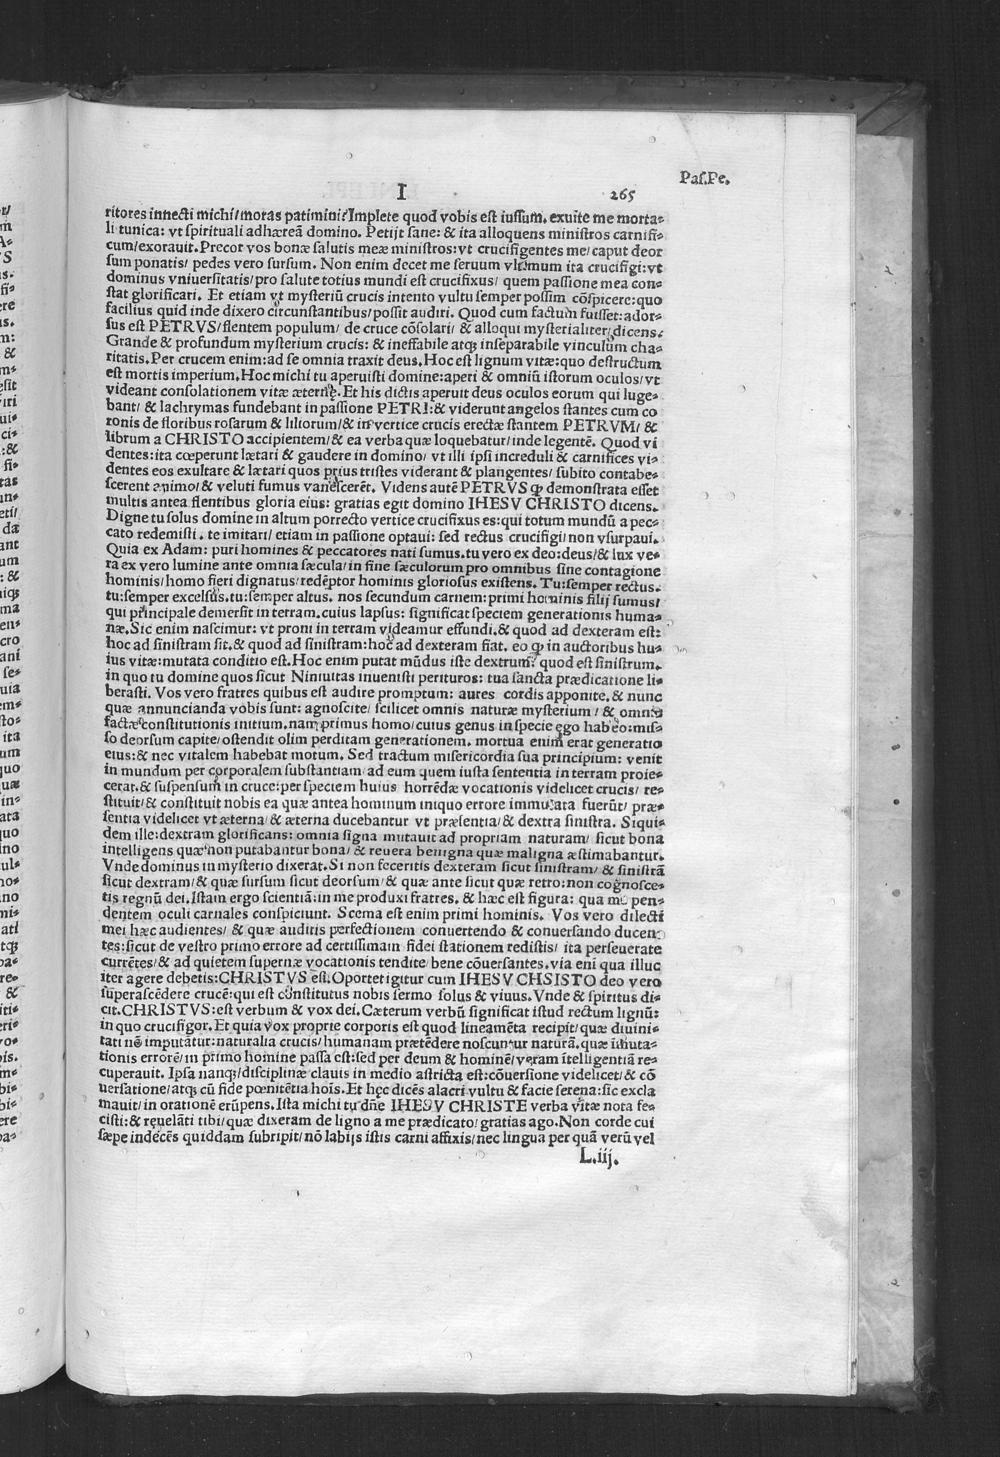 Pas.Pe.
I
265
ritores innecti michi/moras patimini? Implete quod vobis est iussum. exuite me morta-
li tunica: vt spirituali adhæreã domino. Petijt sane: & ita alloquens ministros carnifi-
cum/exorauit. Precor vos bonæ salutis meæ ministros: vt crucifigentes me/caput deor
sum ponatis/ pedes vero sursum. Non enim decet me seruum vltimum ita crucifigi: vt
dominus vniuersitatis/pro salute totius mundi est crucifixus/ quem passione mea con-
stat glorificari. Et etiam vt mysteriũ crucis intento vultu semper possim cõspicere: quo
facilius quid inde dixero circunstantibus/possit audiri. Quod cum factum fuisset: ador-
sus est PETRVS/flentem populum/ de cruce cõsolari/ & alloqui mysterialiter/dicens.
Grande & profundum mysterium crucis: & ineffabile atq; inseparabile vinculum cha-
ritatis. Per crucem enim: ad se omnia traxit deus. Hoc est lignum vitæ: quo destructum
est mortis imperium. Hoc michi tu aperuisti domine: aperi & omniũ istorum oculos/vt
videant consolationem vitæ æternæ. Et his dictis aperuit deus oculos eorum qui luge-
bant/ & lachrymas fundebant in passione PETRI: & viderunt angelos stantes cum co
ronis de floribus rosarum & liliorum/& in vertice crucis erectæ stantem PETRVM/ &
librum a CHRISTO accipientem/& ea verba quæ loquebatur/inde legentẽ. Quod vi
dentes: ita cœperunt lætari & gaudere in domino/ vt illi ipsi increduli & carnifices vi-
dentes eos exultare & lætari quos prius tristes viderant & plangentes/ subito contabe-
scerent animo/& veluti fumus vanescerẽt. Videns autẽ PETRVS ꝙ demonstrata esset
multis antea flentibus gloria eius: gratias egit domino IHESV CHRISTO dicens.
Digne tu solus domine in altum porrecto vertice crucifixus es: qui totum mundũ a pec-
cato redemisti. te imitari/ etiam in passione optaui: sed rectus crucifigi/non vsurpaui.
Quia ex Adam: puri homines & peccatores nati sumus. tu vero ex deo: deus/& lux ve-
ra ex vero lumine ante omnia sæcula/in fine sæculorum pro omnibus sine contagione
hominis/homo fieri dignatus/redẽptor hominis gloriosus existens. Tu: semper rectus.
tu: semper excelsus. tu: semper altus. nos secundum carnem: primi hominis filij sumus/
qui principale demersit in terram. cuius lapsus: significat speciem generationis huma-
næ. Sic enim nascimur: vt proni in terram videamur effundi. & quod ad dexteram est:
hoc ad sinistram sit. & quod ad sinistram: hoc ad dexteram fiat. eo ꝙ in auctoribus hu-
ius vitæ: mutata conditio est. Hoc enim putat mũdus iste dextrum/ quod est sinistrum.
in quo tu domine quos sicut Niniuitas inuenisti perituros: tua sancta prædicatione li-
berasti. Vos vero fratres quibus est audire promptum: aures cordis apponite. & nunc
quæ annuncianda vobis sunt: agnoscite/ scilicet omnis naturæ mysterium/ & omnis
factæ constitutionis initium. nam primus homo/cuius genus in specie ego habeo: mis-
so deorsum capite/ostendit olim perditam generationem. mortua enim erat generatio
eius: & nec vitalem habebat motum. Sed tractum misericordia sua principium: venit
in mundum per corporalem substantiam/ad eum quem iusta sententia in terram proie-
cerat. & suspensum in cruce: per speciem huius horrẽdæ vocationis videlicet crucis/ re-
stituit/& constituit nobis ea quæ antea hominum iniquo errore immutata fuerũt/ præ-
sentia videlicet vt æterna/& æterna ducebantur vt præsentia/& dextra sinistra. Siqui-
dem ille: dextram glorificans: omnia signa mutauit ad propriam naturam/ sicut bona
intelligens quæ non putabantur bona/ & reuera benigna quæ maligna æstimabantur.
Vnde dominus in mysterio dixerat. Si non feceritis dexteram sicut sinistram/ & sinistrã
sicut dextram/& quæ sursum sicut deorsum/& quæ ante sicut quæ retro: non cognosce-
tis regnũ dei. Istam ergo scientiã: in me produxi fratres. & hæc est figura: qua me pen-
dentem oculi carnales conspiciunt. Scema est enim primi hominis. Vos vero dilecti
mei hæc audientes/ & quæ auditis perfectionem conuertendo & conuersando ducen
tes: sicut de vestro primo errore ad certissimam fidei stationem redistis/ ita perseuerate
currẽtes/& ad quietem supernæ vocationis tendite/bene cõuersantes. via eni qua illuc
iter agere debetis: CHRISTVS est. Oportet igitur cum IHESV CHSISTO deo vero
superascẽdere crucẽ: qui est cõstitutus nobis sermo solus & viuus. Vnde & spiritus di-
cit. CHRISTVS: est verbum & vox dei. Cæterum verbũ significat istud rectum lignũ:
in quo crucifigor. Et quia vox proprie corporis est quod lineamẽta recipit/quæ diuini-
tati nõ imputãtur: naturalia crucis/humanam prætẽdere noscuntur naturã. quæ ĩmuta-
tionis errorẽ/in primo homine passa est: sed per deum & hominẽ/veram ĩtelligentiã re-
cuperauit. Ipsa nanq;/disciplinæ clauis in medio astricta est: cõuersione videlicet/& cõ
uersatione/atq; cũ fide pœnitẽtia hoĩs. Et hęc dicẽs alacri vultu & facie serena: sic excla
mauit/in orationẽ erũpens. Ista michi tu dñe IHESV CHRISTE verba vitæ nota fe-
cisti: & reuelãti tibi/quæ dixeram de ligno a me prædicato/gratias ago. Non corde cui
sæpe indecẽs quiddam subripit/nõ labijs istis carni affixis/nec lingua per quã verũ vel
L.iij.